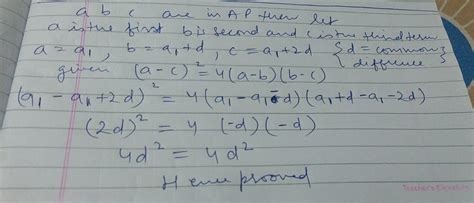 a b c are in AP then let
a is the first b is second and c is third term
a = a₁, b = a₁+d, c = a₁+2d {d = common difference}
given (a-c)² = 4(a-b)(b-c)
(a₁ - a₁+2d)² = 4(a₁-a₁-d)(a₁+d-a₁-2d)
(2d)² = 4 (-d)(-d)
4d² = 4d²
Hence prooved
Teacher's Signature